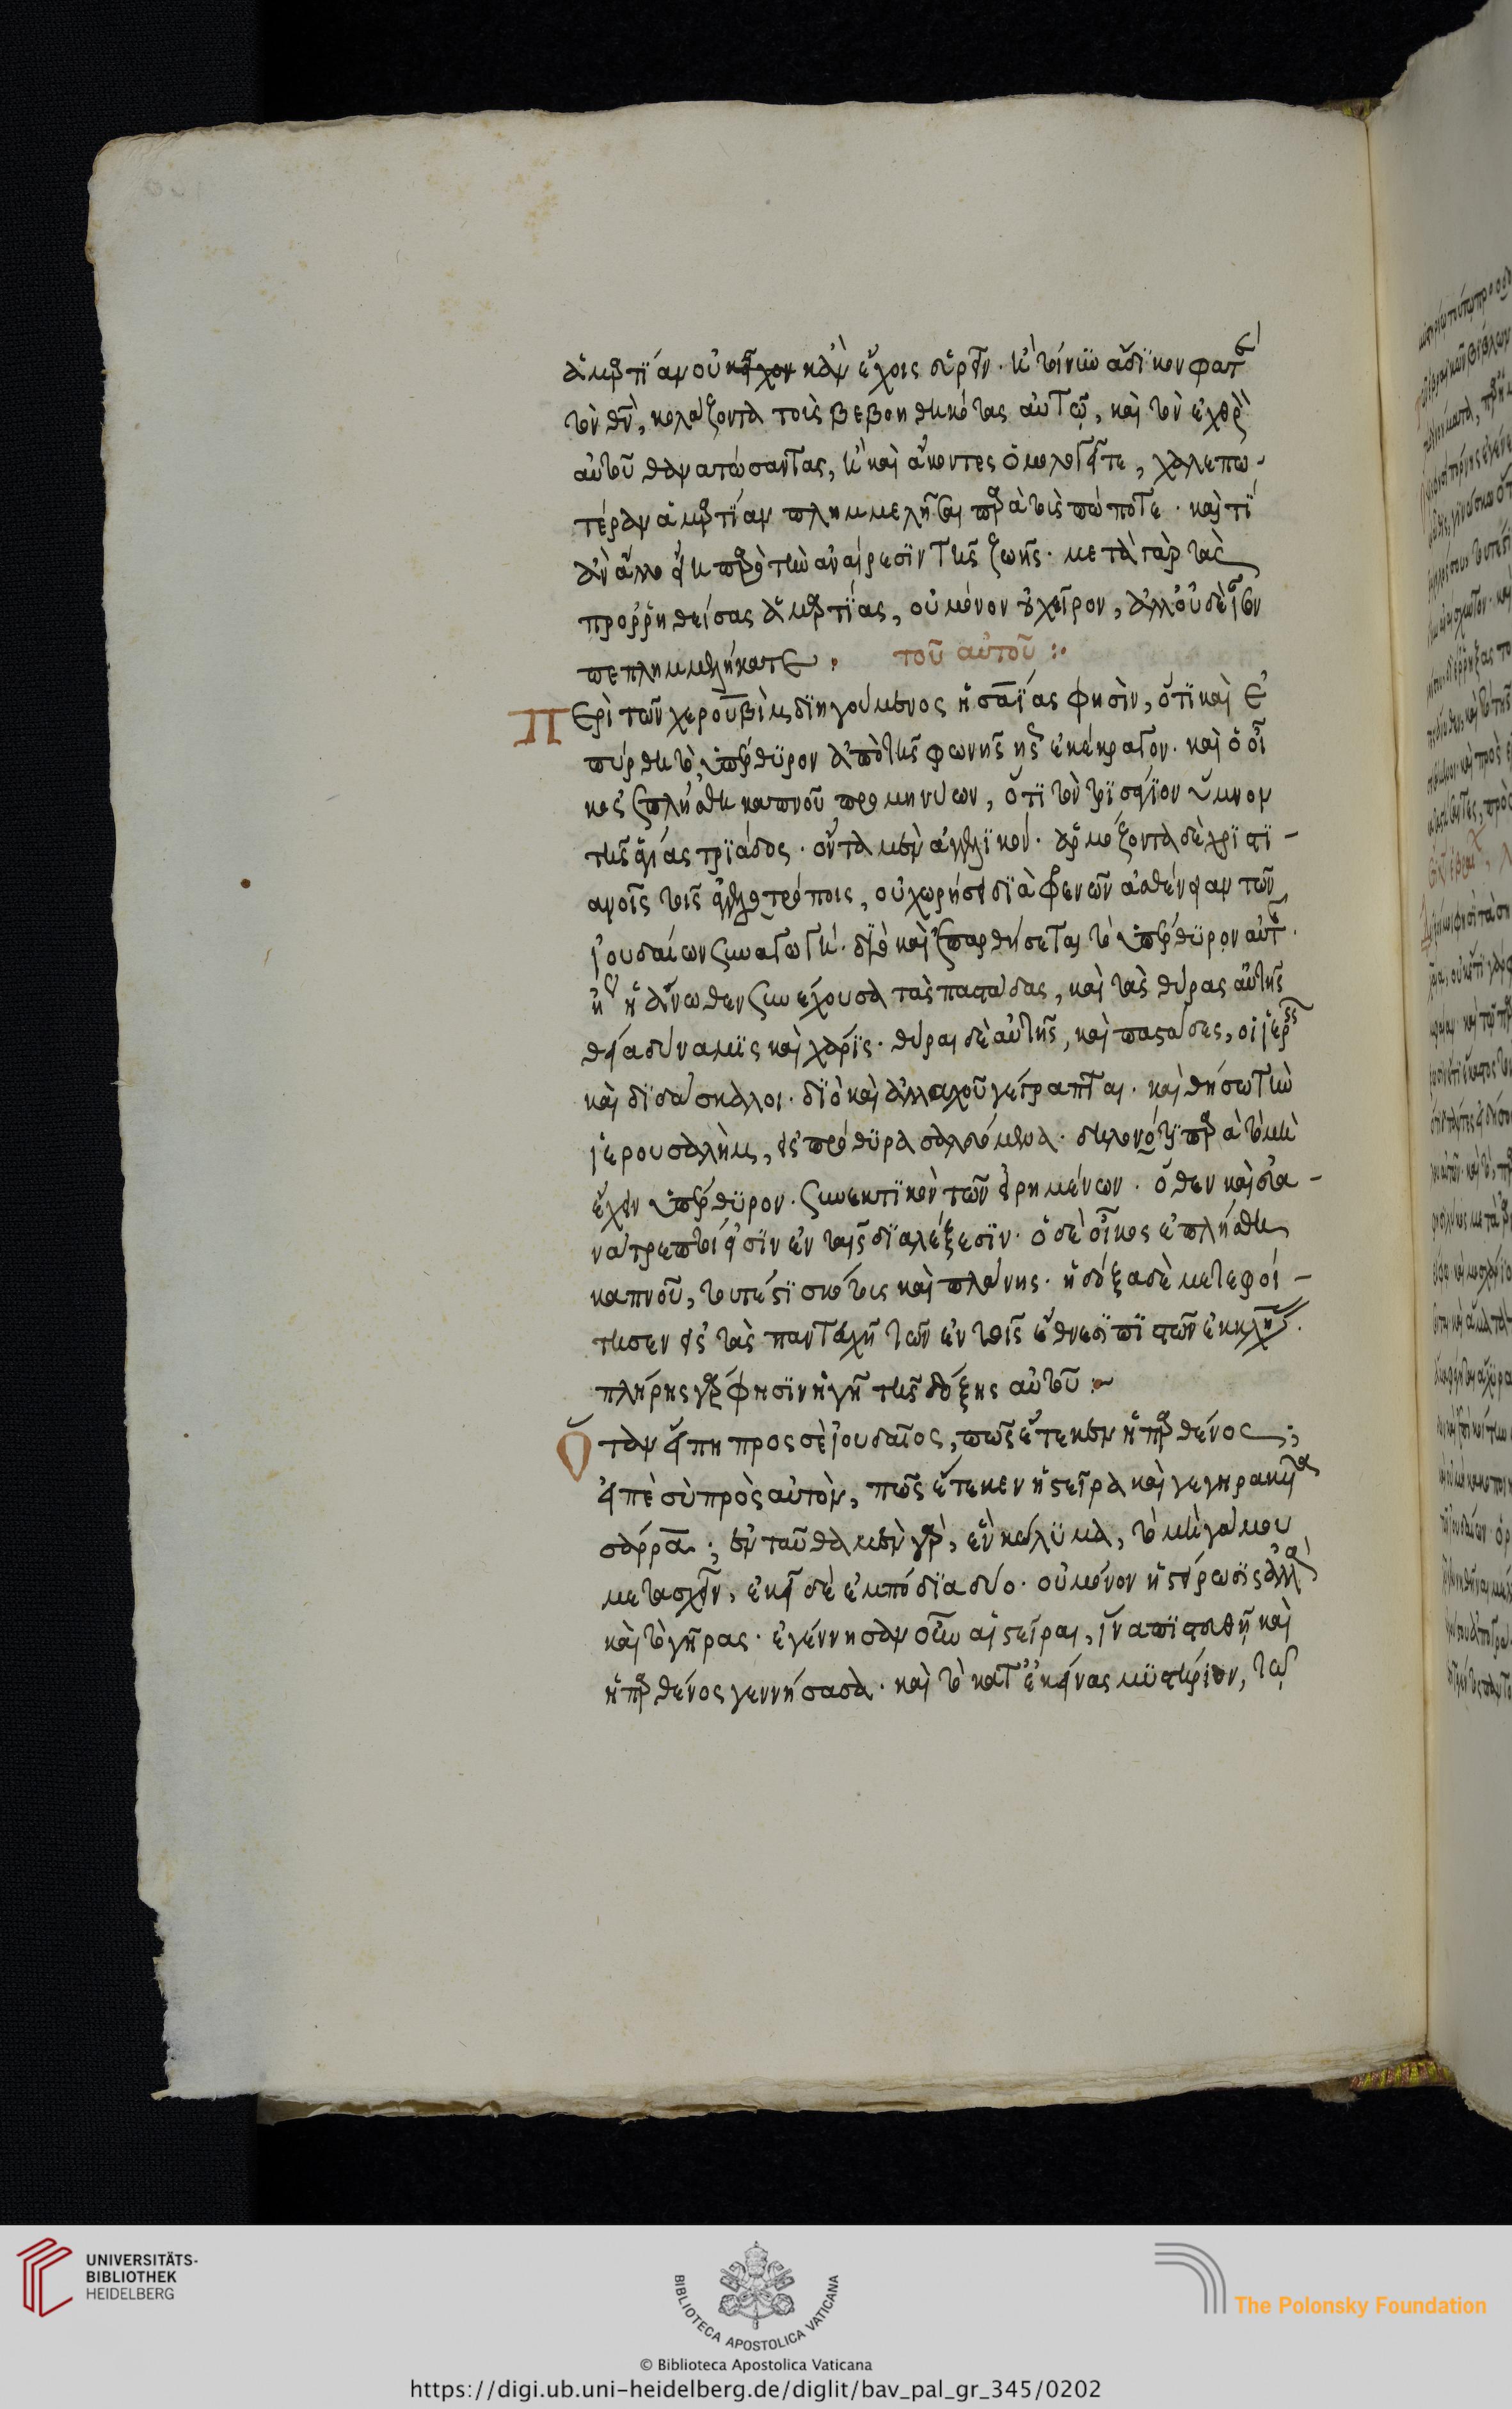 ἁμαρτίαν οὐκ ἂν ἔχοις εὑρεῖν. εἰ τοίνυν ἄδικον φατὲ
τὸν θν, κολάζοντα τοὺς βεβοηθηκότας αὐτῷ, καὶ τὸν ἐχθρὸν
αὐτοῦ θανατώσαντας, εἰ καὶ ἄκοντες ὁμολογεῖτε, χαλεπω-
τέραν ἁμαρτίαν πλημμελῆσαι παρὰ τὰς πώποτε. καὶ τί
ἂν ἄλλο εἴη παρὰ τὴν ἀναίρεσιν τῆς ζωῆς. μετὰ γὰρ τὰς
προρρηθείσας ἁμαρτίας, οὐ μόνον οὐ χεῖρον, ἀλλ' οὐδὲ ἶσον
πεπλημμελήκατε. τοῦ αὐτοῦ :·
Περὶ τῶν χερουβὶμ διηγούμενος ἡσαΐας φησὶν, ὅτι καὶ ἐ
πήρθη τὸ ὑπέρθυρον ἀπὸ τῆς φωνῆς ἧς ἐκέκραγον. καὶ ὁ οἶ
κος ἐπλήσθη καπνοῦ προμηνύων, ὅτι τὸν τρισάγιον ὕμνον
τῆς ἁγίας τριάδος. ὄντα μὲν ἀγγελικόν. ἁρμόζοντα δὲ χριστι-
ανοῖς τοῖς ἀγγελοτρόποις, οὐ χωρήσει διὰ φθενῶν ἀσθένειαν τῶν
ἰουδαίων συναγωγή. διὸ καὶ ἐπαρθήσεται τὸ ὑπέρθυρον αὐτῆς.
ἡ ἄνωθεν συνέχουσα τὰς παστάδας, καὶ τὰς θύρας αὐτῆς
θεία δύναμις καὶ χάρις. θύραι δὲ αὐτῆς, καὶ παστάδες, οἱ ἱερεῖς
καὶ διδάσκαλοι. διὸ καὶ ἀλλαχοῦ γέγραπται. καὶ θήσω τὴν
ἱερουσαλὴμ, εἰς πρόθυρα σαλευόμενα. δηλονότι παρὰ τὸ μὴ
ἔχειν ὑπέρθυρον. συνεκτικὸν τῶν εἰρημένων. ὅθεν καὶ εἰσα-
νάτρεπτοί εἰσιν ἐν ταῖς διαλέξεσιν. ὁ δὲ οἶκος ἐπλήσθη
καπνοῦ, τουτέστι σκότους καὶ πλάνης. ἡ δόξα δὲ μετεφοί-
τησεν εἰς τὰς πανταχῆ τῶν ἐν τοῖς ἔθνεσι πιστῶν ἐκκλησίας.
πλήρης γάρ φησιν ἡ γῆ τῆς δόξης αὐτοῦ :~
Ὅταν εἴπη προς σὲ ἰουδαῖος, πῶς ἔτεκεν ἡ παρθένος;
εἰπὲ σὺ πρὸς αὐτὸν, πῶς ἔτεκεν ἡ στεῖρα καὶ γεγηρακυῖα
σάρρα; ἐνταῦθα μὲν γὰρ, ἓν κώλυμα, τὸ μὴ γάμου
μετασχεῖν, ἐκεῖ δὲ ἐμπόδια δύο. οὐ μόνον ἡ στείρωσις ἀλλὰ
καὶ τὸ γῆρας. ἐγέννησαν οὖν αἱ στεῖραι, ἵνα πιστευθῇ καὶ
ἡ παρθένος γεννήσασα. καὶ τὸ κατ' ἐκείνας μυστήριον, τῶ
UNIVERSITÄTS-
BIBLIOTHEK
HEIDELBERG
BIBLIOTECA APOSTOLICA VATICANA
The Polonsky Foundation
© Biblioteca Apostolica Vaticana
https://digi.ub.uni-heidelberg.de/diglit/bav_pal_gr_345/0202